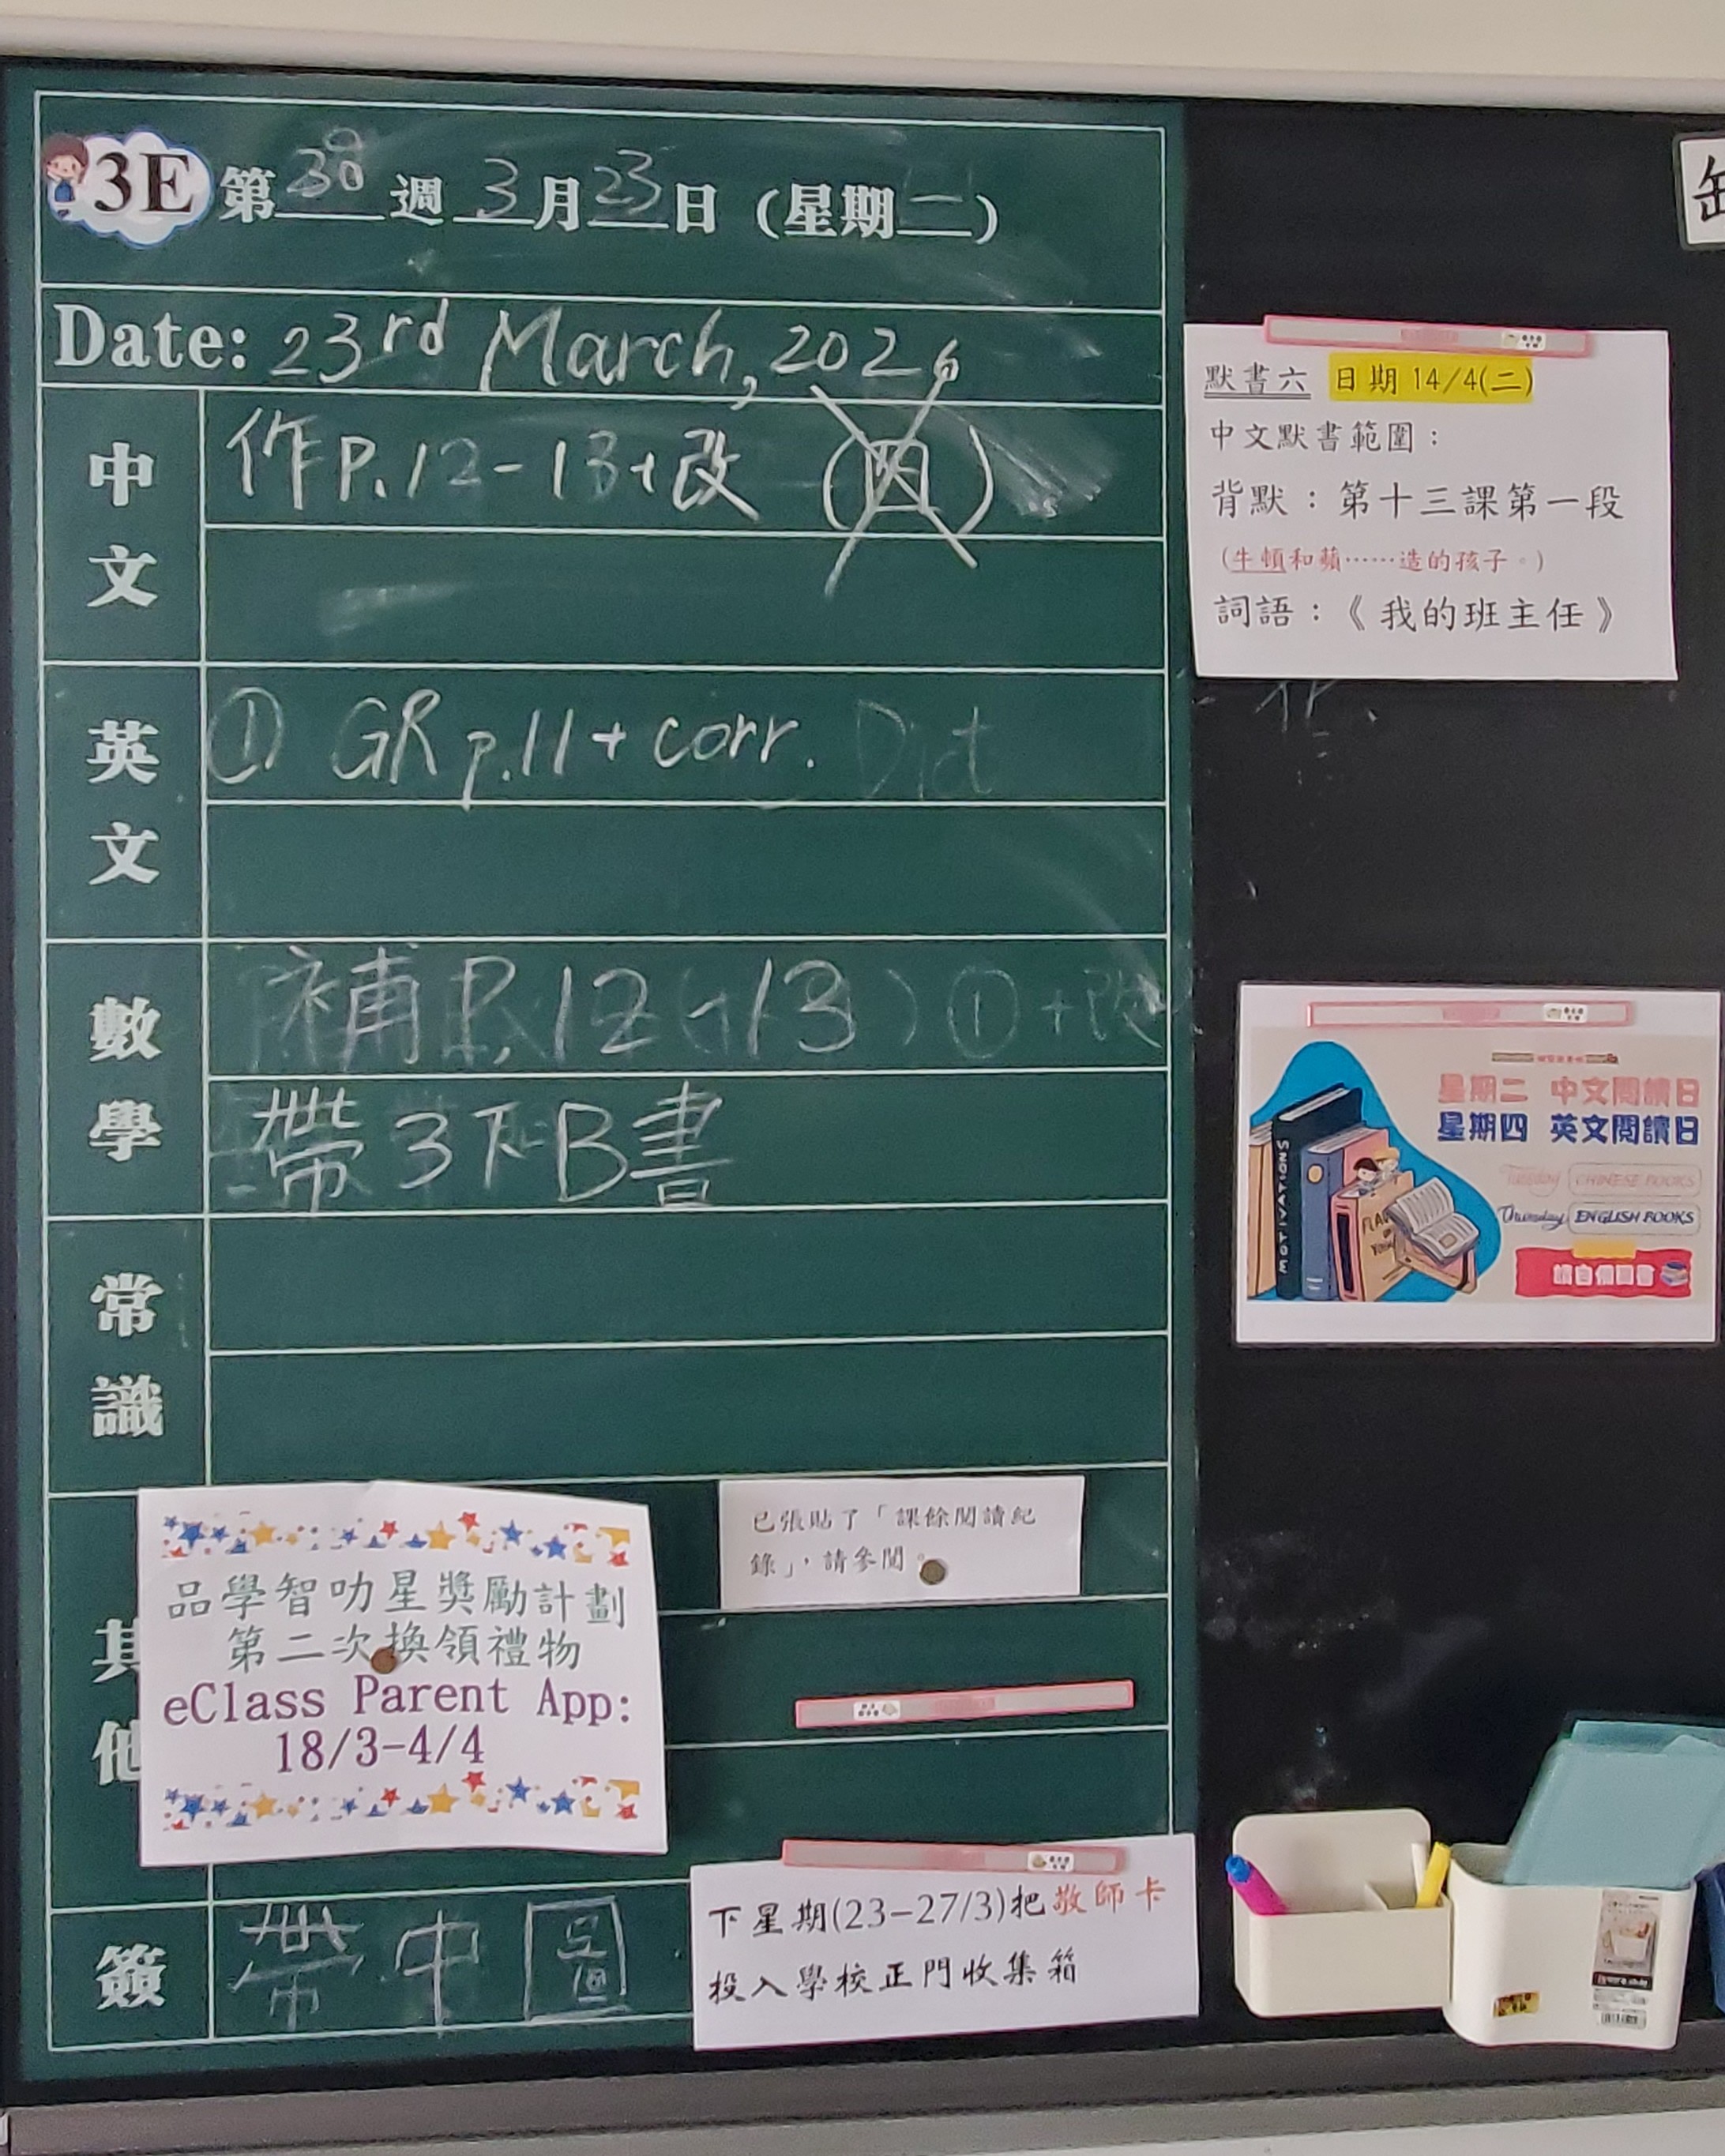 3E 第30週 3月23日 (星期一)
Date: 23rd March, 2026
中文
作P.12-13+改 (四)
英文
① GR p.11 + corr. Dict
數學
補P.12-13 ① +改
帶3下B書
常識
其他
品學智叻星獎勵計劃
第二次換領禮物
eClass Parent App:
18/3-4/4
已張貼了「課餘閱讀紀
錄」，請參閱。
簽
帶中圖
下星期(23-27/3)把敬師卡
投入學校正門收集箱
默書六 日期14/4(二)
中文默書範圍：
背默：第十三課第一段
(牛頓和蘋……造的孩子。)
詞語：《我的班主任》
星期二 中文閱讀日
星期四 英文閱讀日
Tuesday CHINESE BOOKS
Thursday ENGLISH BOOKS
請自備圖書
MOTIVATIONS